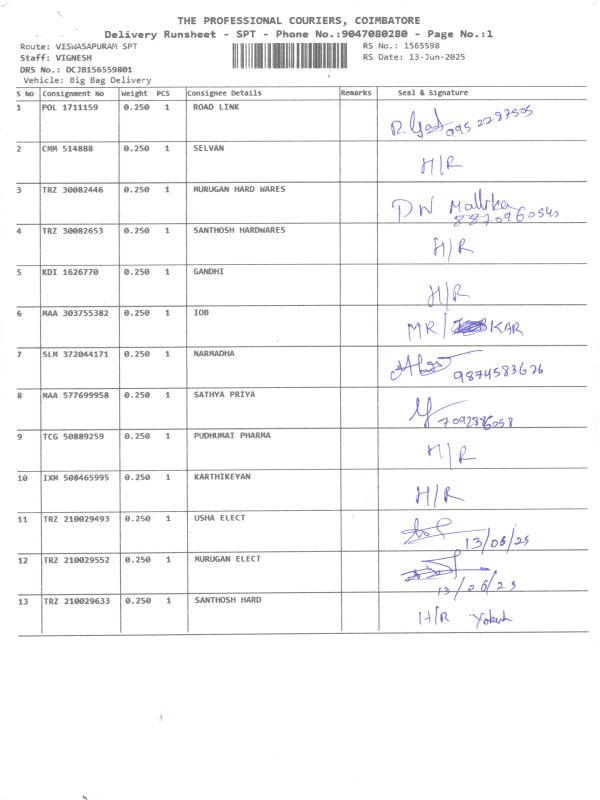 THE PROFESSIONAL COURIERS, COIMBATORE
Delivery Runsheet - SPT - Phone No.:9047080280 - Page No.:1
Route: VISWASAPURAM SPT RS No.: 1565598
Staff: VIGNESH RS Date: 13-Jun-2025
DRS No.: DCJB156559801
Vehicle: Big Bag Delivery
S No Consignment No Weight PCS Consignee Details Remarks Seal & Signature
1 POL 1711159 0.250 1 ROAD LINK
995 2287505
2 CMM 514888 0.250 1 SELVAN
H/R
3 TRZ 30082446 0.250 1 MURUGAN HARD WARES
DW Mallika
8870960540
4 TRZ 30082653 0.250 1 SANTHOSH HARDWARES
H/R
5 KDI 1626770 0.250 1 GANDHI
H/R
6 MAA 303755382 0.250 1 IOB
MR/ KAR
7 SLM 372044171 0.250 1 NARMADHA
9874583626
8 MAA 577699958 0.250 1 SATHYA PRIYA
9 TCG 50889259 0.250 1 PUDHUMAI PHARMA
H/R
10 IXM 508465995 0.250 1 KARTHIKEYAN
H/R
11 TRZ 210029493 0.250 1 USHA ELECT
13/06/25
12 TRZ 210029552 0.250 1 MURUGAN ELECT
13/06/25
13 TRZ 210029633 0.250 1 SANTHOSH HARD
H/R